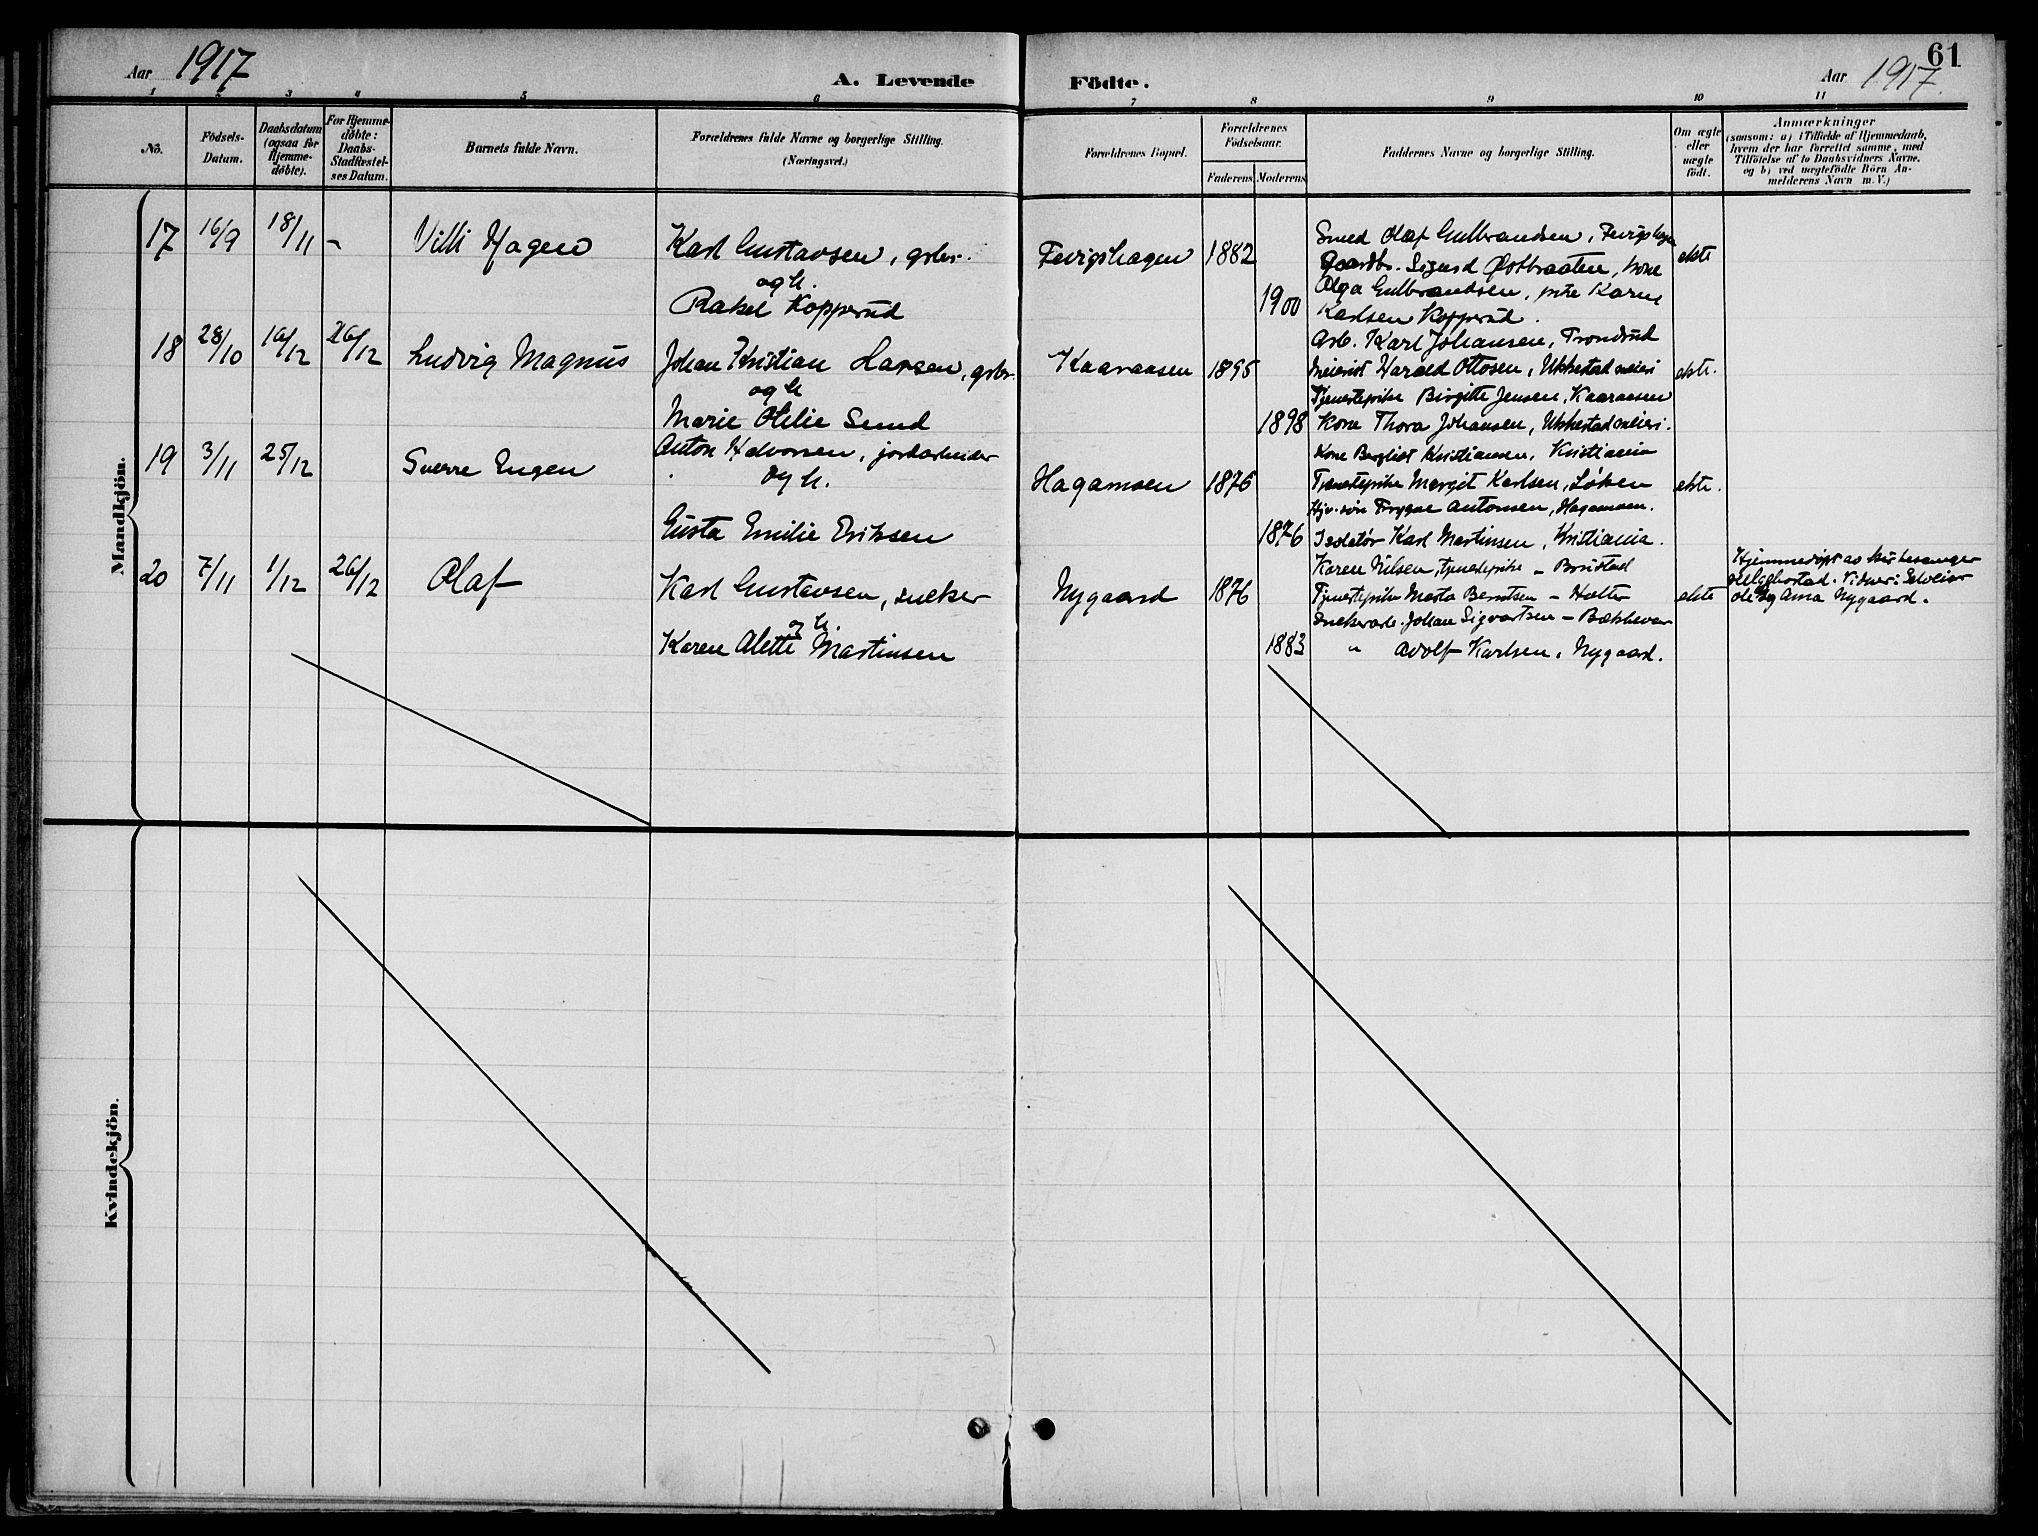 Aar 1917
A. Levende
Födte.
Aar 1917.
61
1 2 3 4 5 6 7 8 9 10 11
Nö.
Födsels-
Datum.
Daabsdatum
(ogsaa for
Hjemme-
døbte).
For Hjemme-
døbte:
Daabs-
Stadfæstel-
ses Datum.
Barnets fulde Navn.
Forældrenes fulde Navne og borgerlige Stilling.
(Næringsvei.)
Forældrenes Bopæl.
Forældrenes
Födselsaar.
Faderens. Moderens.
Faddernes Navne og borgerlige Stilling.
Om ægte
eller
uægte
født.
Anmærkninger
(saasom: a) i Tilfælde af Hjemmedaab,
hvem der har forrettet samme, med
Tilföielse af to Daabsvidners Navne.
og b) ved uægtefødte Börn An-
melderens Navn m. V.)
Mandkjön.
17 16/9 18/11 -
Villi Hagen
Karl Gustavsen, grbr.
og h.
Rakel Kopperud
Fevigshagen 1882
1900
Smed Olaf Gulbrandsen, Fevigshagen
Gaardbr. Sigurd Østbraaten, kone
Olga Gulbrandsen, pike Karen
Karlsen Kopperud.
ekte
18 28/10 16/12 26/12
Ludvig Magnus
Johan Kristian Hansen, grbr.
og h
Marie Otilie Sund
Kaaraasen 1895
1898
Arb. Karl Johansen, Trondrud
Meierist Harald Ottosen, Ukkestad meieri
Tjenestepike Birgitte Jensen, Kaaraasen
Kone Thora Johansen, Ukkestad meieri.
ekte.
19 3/11 25/12
Sverre Engen
Anton Halvorsen, jordarbeider
og h.
Gusta Emilie Eriksen
Hagamoen 1876
1876
Kone Bergliot Kristiansen, Kristiania
Tjenestepike Margit Karlsen, Løken
Hjv. søn Trygve Antonsen, Hagamoen.
Isolatør Karl Martinsen, Kristiania.
ekte.
20 7/11 1/12 26/12
Olaf
Karl Gustavsen, snekker
og h.
Karen Alette Martinsen
Nygaard 1876
1883
Karen Nilsen, tjenestepike - Brustad
Tjenestepike Marta Berntsen - Holter
Snekkerarb. Johan Sigvartsen - Bækkevar
" Adolf Karlsen, Nygaard.
ekte
Hjemmedøpt av kirkesanger
Helgebostad. Vidner: Selveier
Ole og Anna Nygaard.
Kvindekjön.